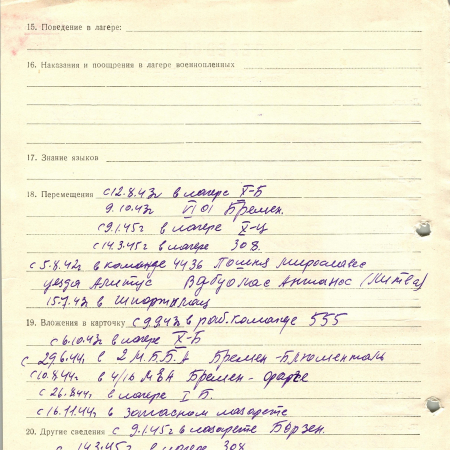 15. Поведение в лагере:
16. Наказания и поощрения в лагере военнопленных
17. Знание языков
18. Перемещения с 12.8.43г в лагере X-Б
9.10.43г VI 01 Бремен.
с 9.1.45г в лагере X-Ц
с 14.3.45г в лагере 308.
с 5.8.42г в команде 4436 Пошня Мирославас
уезда Алитус (Литва)
15.7.43 в
19. Вложения в карточку с 9.9.43г в раб. команде 555
с 6.10.43г в лагере X-Б
с 29.6.44г. в 2 М.Б.Б.А Бремен-Блюменталь
с 10.8.44г. в 4/16 МВА Бремен-
с 26.8.44г. в лагере I Б.
с 16.11.44г. в запасном лазарете
20. Другие сведения с 9.1.45г в лазарете Бėрзен.
с 14.3.45г в лагере 308